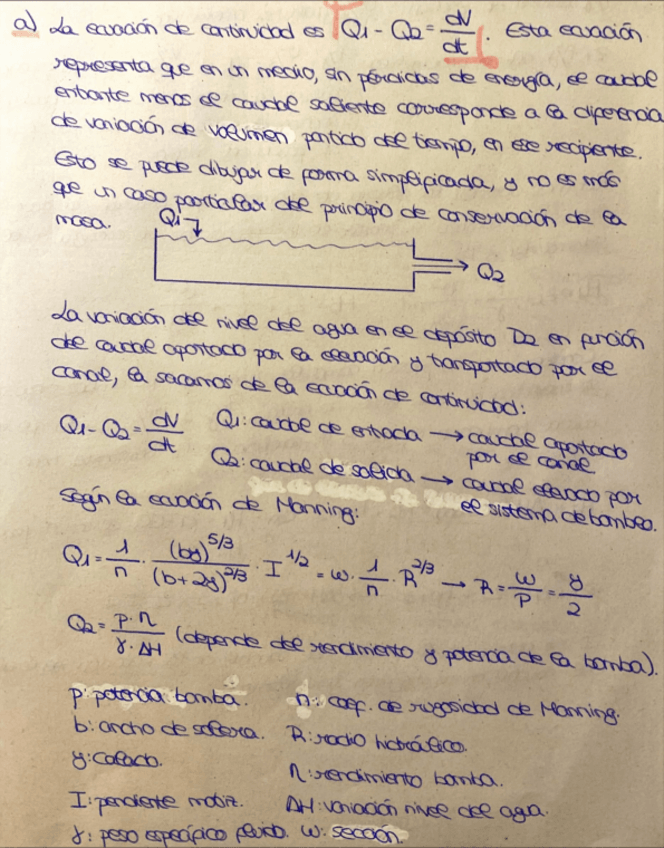 a) La ecuación de continuidad es Q1 - Q2 = dV/dt. Esta ecuación
representa que en un medio, sin pérdidas de energía, el caudal
entrante menos el caudal saliente corresponde a la diferencia
de variación de volumen partido del tiempo, en ese recipiente.
Esto se puede dibujar de forma simplificada, y no es más
que un caso particular del principio de conservación de la
masa.
Q1
Q2
La variación del nivel del agua en el depósito D2 en función
del caudal aportado por la elevación y transportado por el
canal, la sacamos de la ecuación de continuidad:
Q1 - Q2 = dV/dt Q1: caudal de entrada → caudal aportado
por el canal
Q2: caudal de salida → caudal elevado por
el sistema de bombeo.
Según la ecuación de Manning:
Q1 = 1/n · (by)^5/3 / (b+2y)^2/3 · I^1/2 = ω · 1/n · R^2/3 → R = ω/P = y/2
Q2 = P·η / γ·ΔH (depende del rendimiento y potencia de la bomba).
p: potencia bomba. n: coef. de rugosidad de Manning.
b: ancho de solera. R: radio hidráulico.
y: calado. η: rendimiento bomba.
I: pendiente motriz. ΔH: variación nivel del agua.
γ: peso específico fluido. ω: sección.